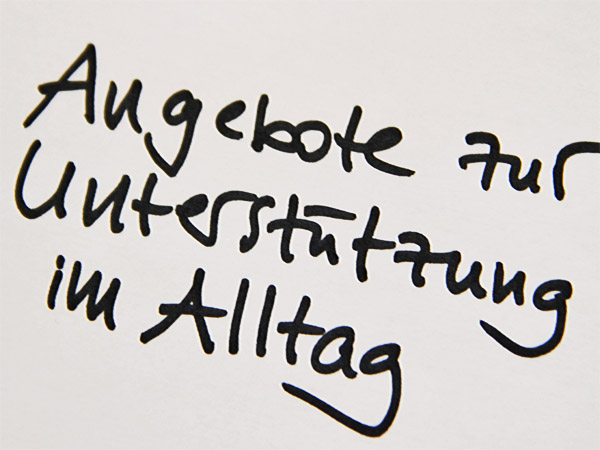 Angebote zur
Unterstützung
im Alltag